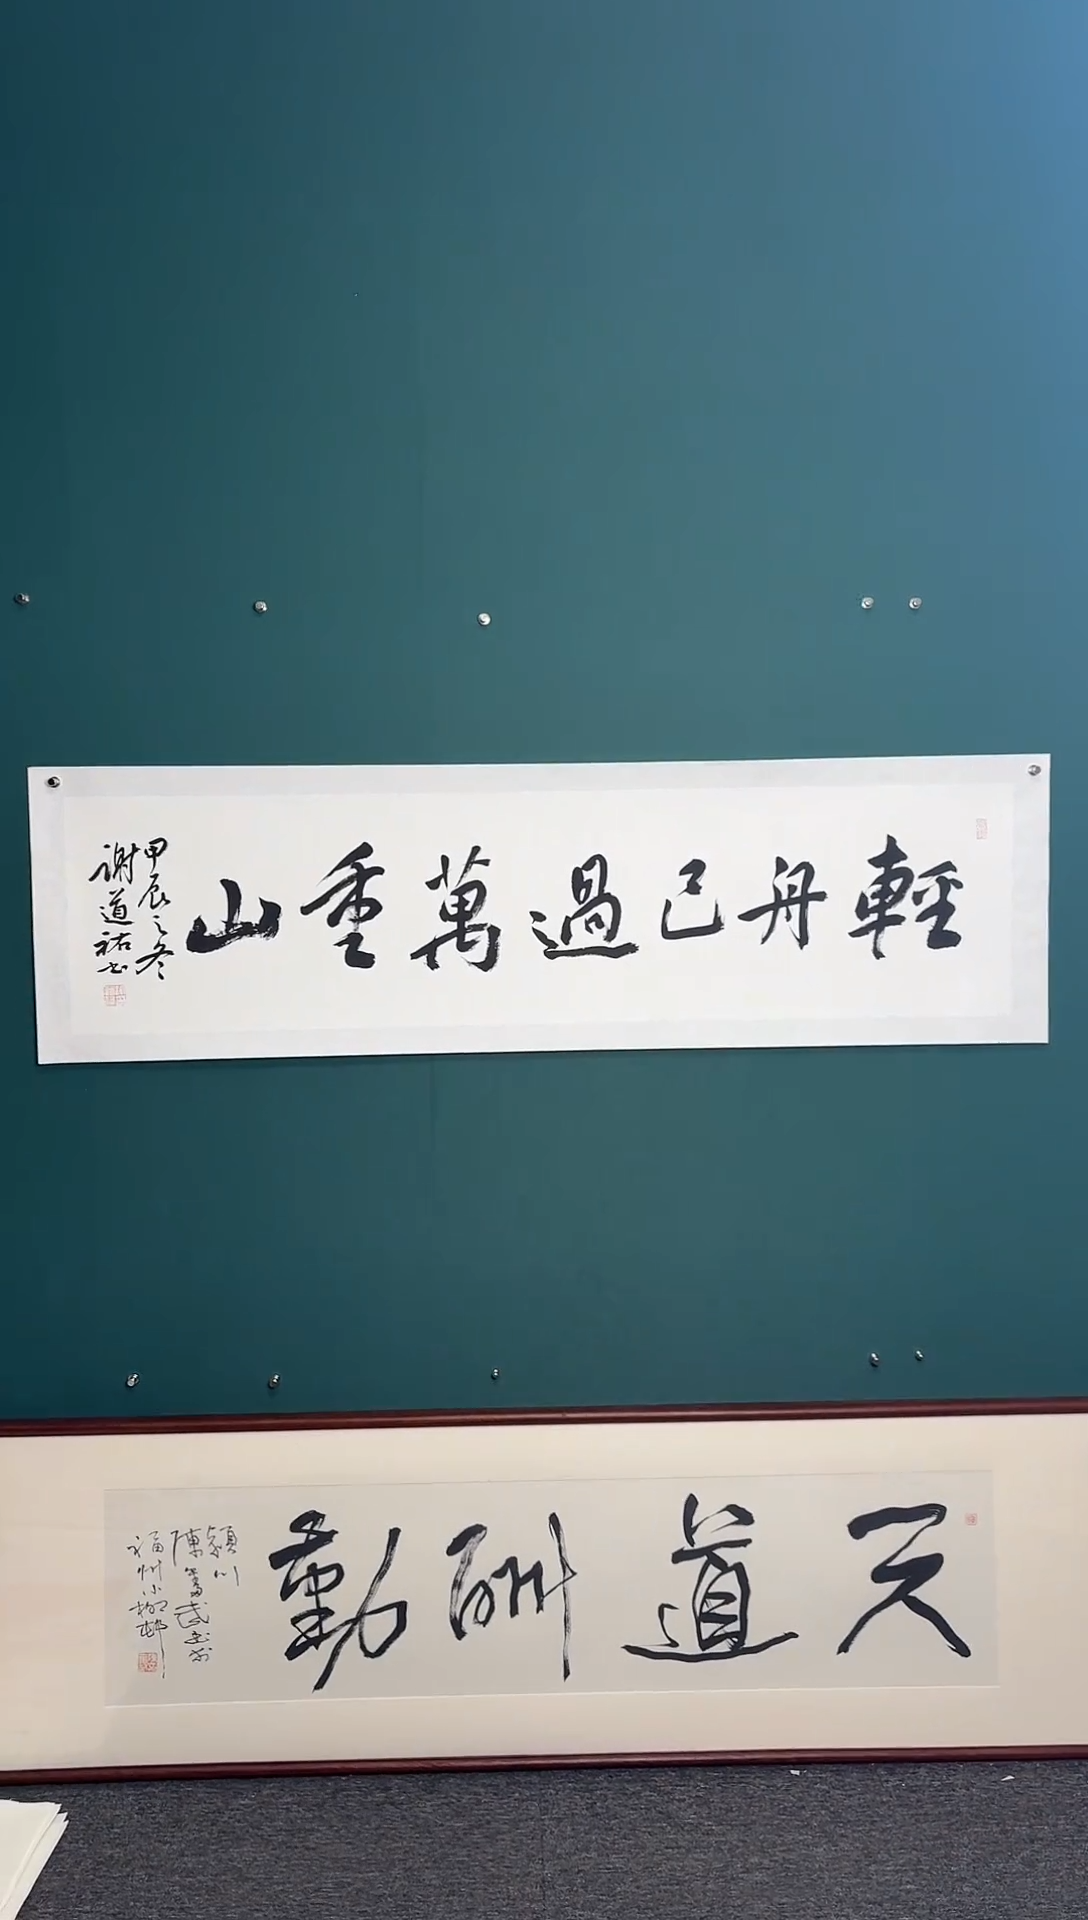 輕舟已過萬重山
甲辰之冬
謝道祐书
天道酬勤
潁川
陳奮武書於
福州小柳邨